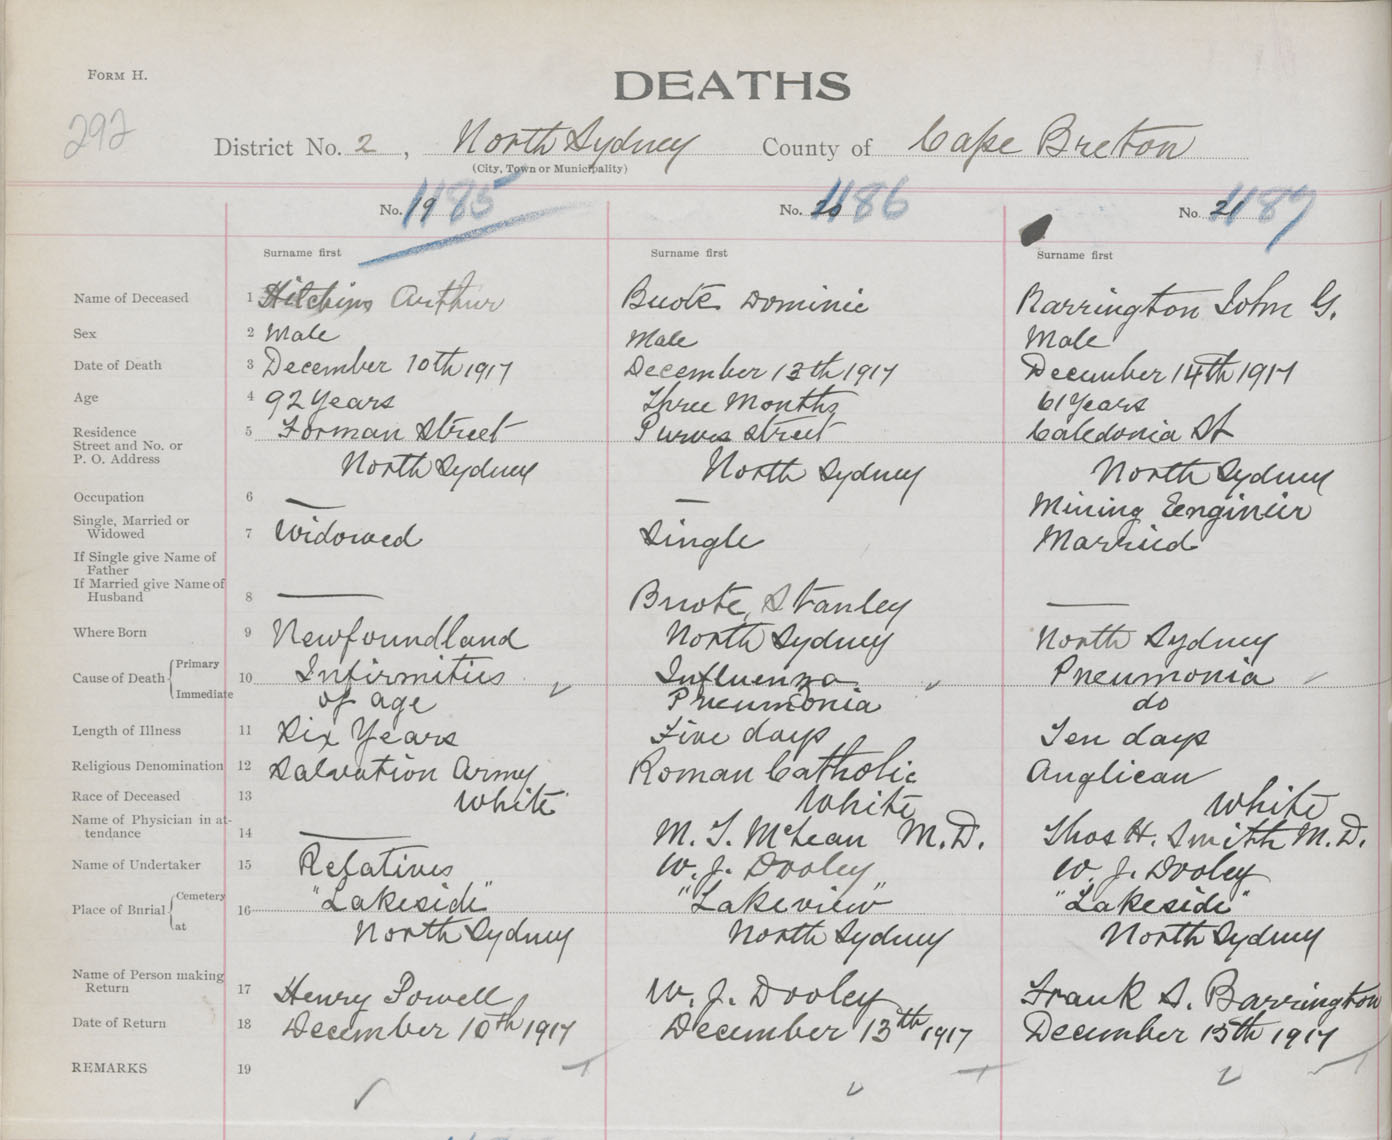 FORM H.
DEATHS
292
District No. 2, North Sydney County of Cape Breton
(City, Town or Municipality)
No. 19 1185 No. 20 1186 No. 21 1187
Surname first Surname first Surname first
Name of Deceased 1 Hitchins Arthur Buote Dominic Barrington John G.
Sex 2 Male Male Male
Date of Death 3 December 10th 1917 December 13th 1917 December 14th 1917
Age 4 92 Years Three Months 61 Years
Residence Street and No. or P. O. Address 5 Forman Street Purves Street Caledonia St
North Sydney North Sydney North Sydney
Occupation 6 — — Mining Engineer
Single, Married or Widowed 7 Widowed Single Married
If Single give Name of Father
If Married give Name of Husband 8 — Buote, Stanley —
Where Born 9 Newfoundland North Sydney North Sydney
Cause of Death { Primary Immediate 10 Infirmities Influenza Pneumonia
of age Pneumonia do
Length of Illness 11 Six Years Five days Ten days
Religious Denomination 12 Salvation Army Roman Catholic Anglican
Race of Deceased 13 White White White
Name of Physician in attendance 14 — M. T. McLean M.D. Thos H. Smith M.D.
Name of Undertaker 15 Relatives W. J. Dooley W. J. Dooley
Place of Burial { Cemetery at 16 "Lakeside" "Lakeview" "Lakeside"
North Sydney North Sydney North Sydney
Name of Person making Return 17 Henry Powell W. J. Dooley Frank S. Barrington
Date of Return 18 December 10th 1917 December 13th 1917 December 15th 1917
REMARKS 19